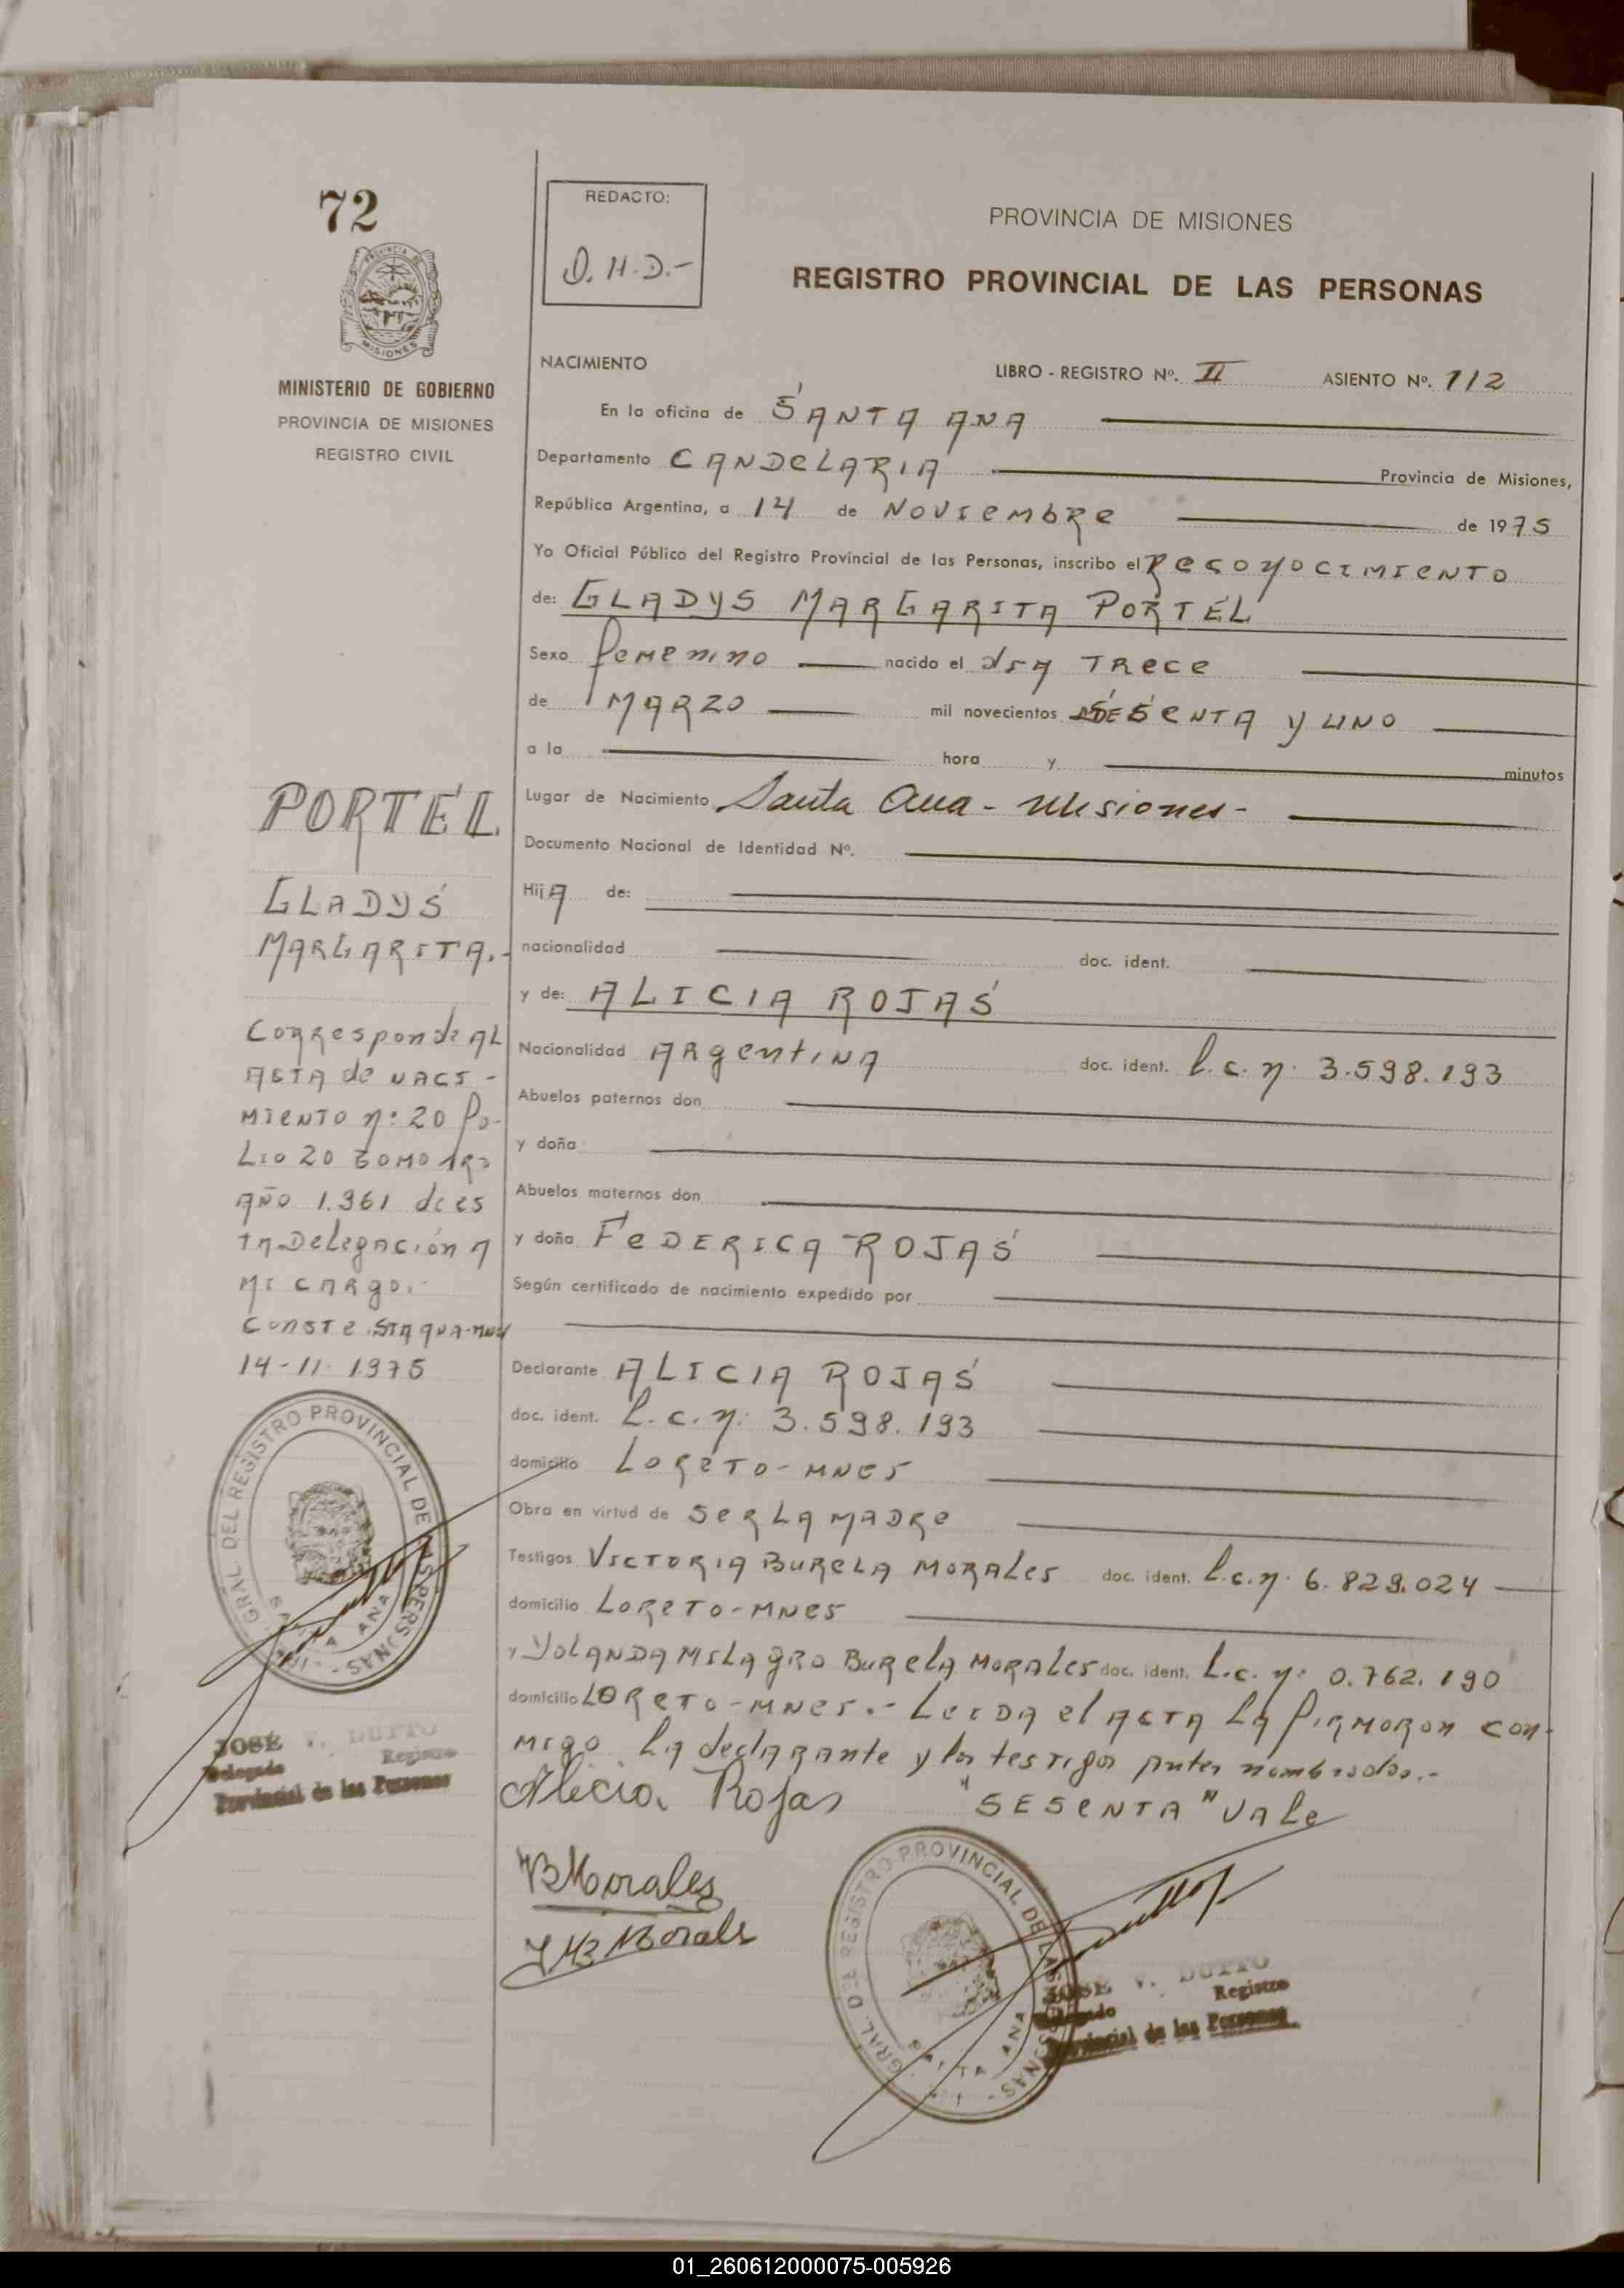 72
MISIONES
MINISTERIO DE GOBIERNO
PROVINCIA DE MISIONES
REGISTRO CIVIL
REDACTO:
D. H. D.-
PROVINCIA DE MISIONES
REGISTRO PROVINCIAL DE LAS PERSONAS
NACIMIENTO LIBRO - REGISTRO Nº. II ASIENTO Nº. 112
En la oficina de SANTA ANA
Departamento CANDELARIA Provincia de Misiones,
República Argentina, a 14 de NOVIEMBRE de 1975
Yo Oficial Público del Registro Provincial de las Personas, inscribo el RECONOCIMIENTO
de: GLADYS MARGARITA PORTEL
Sexo femenino nacido el día TRECE
de MARZO mil novecientos SESENTA y UNO
a la hora y minutos
Lugar de Nacimiento Santa Ana - Misiones -
Documento Nacional de Identidad Nº.
Hija de:
nacionalidad doc. ident.
y de: ALICIA ROJAS
Nacionalidad ARgentINA doc. ident. L.C. n: 3.598.193
Abuelos paternos don
y doña
Abuelos maternos don
y doña FeDERICA ROJAS
Según certificado de nacimiento expedido por
Declarante ALICIA ROJAS
doc. ident. L.C. n: 3.598.193
domicilio LORETO-MNES
Obra en virtud de SER LA MADRE
Testigos VICTORIA BURELA MORALES doc. ident. L.C. n: 6.829.024
domicilio LORETO-MNES
y YOLANDA MILAGRO BURELA MORALES doc. ident. L.C. n: 0.762.190
domicilio LORETO-MNES.- LEIDA el ACTA LA FIRMORON CON-
MIGO LA declarante y los testigos antes nombrados.-
Alicia Rojas "SESENTA" VALE
VBMorales
YMBMorales
PORTEL
GLADYS
MARGARITA.-
Corresponde AL
ACTA de NACI-
MIENTO n: 20 FO-
LIO 20 TOMO 1RO
AÑO 1.961 de es
ta Delegación A
MI CARGO.-
CONSTE. STA ANA-MNES
14-11-1975
GRAL. DEL REGISTRO PROVINCIAL DE LAS PERSONAS
SANTA ANA
JOSE V. DUTTO
Delegado Registro
Provincial de las Personas
GRAL. DEL REGISTRO PROVINCIAL DE LAS PERSONAS
SANTA ANA
JOSE V. DUTTO
Delegado Registro
Provincial de las Personas
01_260612000075-005926